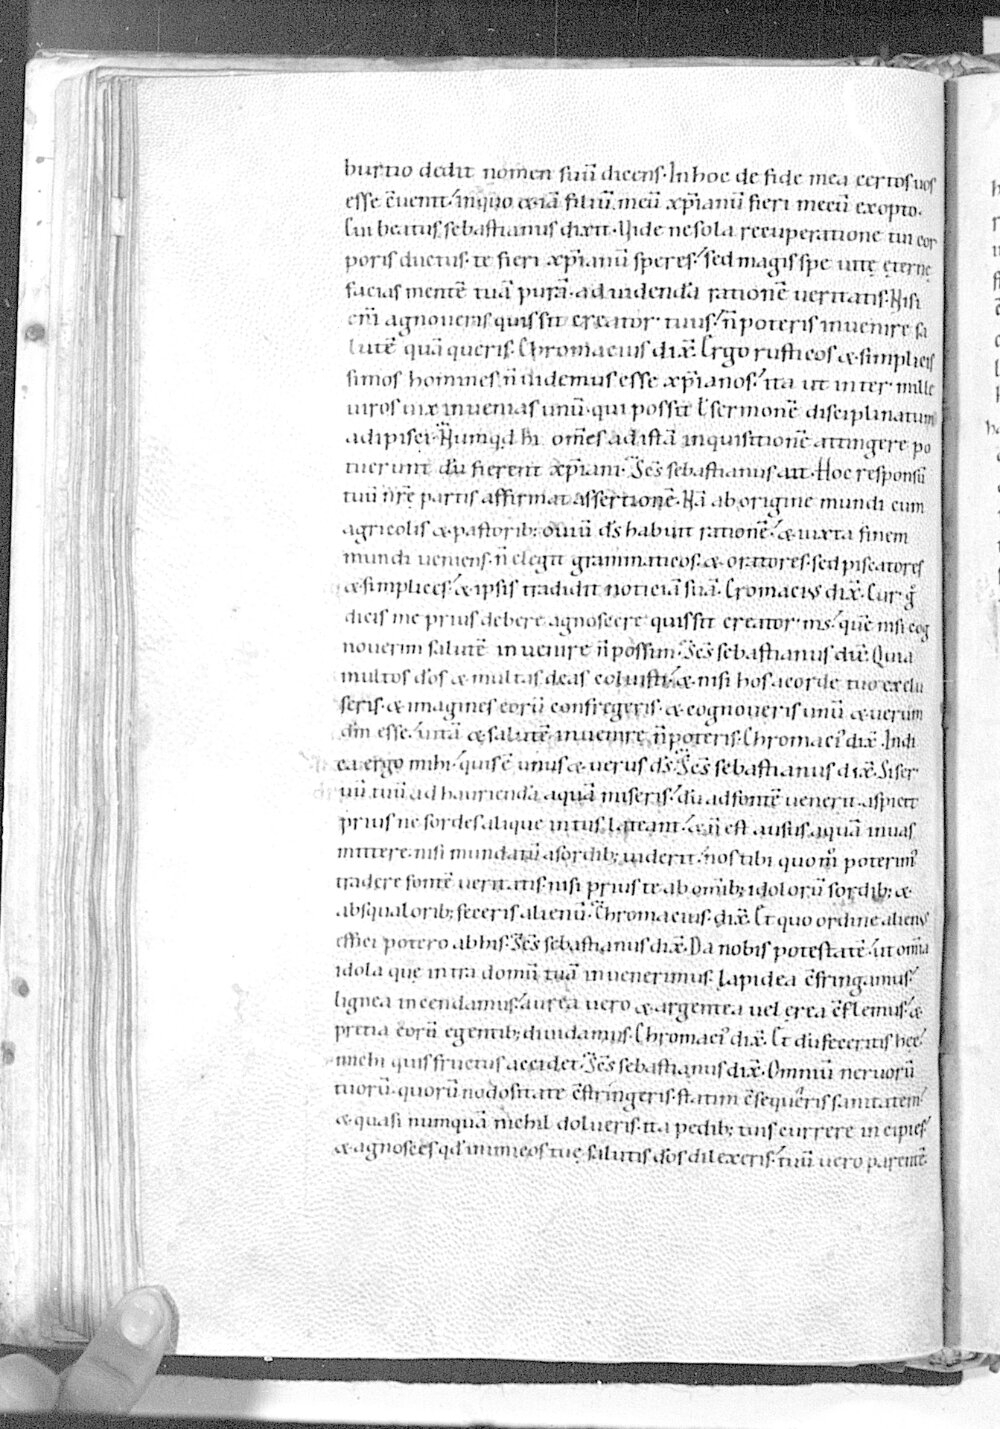 burtio dedit nomen suū dicens· In hoc de fide mea certos uos
esse c̄uenit· in quo & iā filiū meū xp̄ianū fieri mecū exopto·
Cui beatus sebastianus dixit· Vide ne sola recuperatione tui cor
poris ductus· te fieri xp̄ianū speres· sed magis spe uitę ęternę
facias mentē tuā purā· ad uidendā rationē ueritatis· Nisi
eni̅ agnoueris quis sit creator tuus· n̄ poteris inuenire sa
lutē quā queris· Chromacius dix̄· Ergo rusticos & simplicis
simos homines n̄ uidemus esse xp̄ianos· ita ut inter mille
uiros uix inuenias unū· qui possit l̄ sermonē disciplinatum
adipisci· Numqd̄ hi om̄es ad istā inquisitionē attingere po
tuerunt dū fierent xp̄iani· S̄c̄s sebastianus ait· Hoc responsū
tuū nr̄e partis affirmat assertionē· Nā ab origine mundi cum
agricolis & pastorib; ouiū d̄s habuit rationē· & iuxta finem
mundi ueniens· n̄ elegit grammaticos· & oratores· sed piscatores
& simplices· & ipsis tradidit noticiā suā· Cromacius dix̄· Cur g̊
dicis me prius debere agnoscere quis sit creator m̄s· quē nisi cog
nouerim salutē inuenire n̄ possim· S̄c̄s sebastianus dix̄· Quia
multos d̄os & multas deas coluisti· & nisi hos a corde tuo exclu
seris· & imagines eorū confregeris· & cognoueris unū & uerum
dm̄ esse· uitā & salutē inuenire n̄ poteris· Chromaci' dix̄· Indi
ca ergo mihi· quis ē unus & uerus d̄s· S̄c̄s sebastianus dix̄· Si ser
uū tuū ad hauriendā aquā miseris· dū ad fontē uenerit· aspicit
prius ne sordes alique intus lateant· & n̄ est ausus aquā in uas
mittere· nisi mundatū a sordib; uiderit· nos tibi quom̊ poterim'
tradere fontē ueritatis· nisi prius te ab omib; idolorū sordib; &
ab squalorib; feceris alienū· Chromacius dix̄· Et quo ordine alienus
effici potero ab his· S̄c̄s sebastianus dix̄· Da nobis potestatē· ut omīa
idola que intra domū tuā inuenerimus· lapidea c̄fringamus·
lignea incendamus· aurea uero & argentea uel ęrea c̄flemus· &
pretia eorū egentib; diuidamus· Chromaci' dix̄· Et dū feceritis hec·
michi quis fructus accidet· S̄c̄s sebastianus dix̄· Omniū neruorū
tuorū· quorū nodositate c̄stringeris· statim c̄sequeris sanitatem·
& quasi numquā nichil dolueris· ita pedib; tuis currere incipies·
& agnosces qd̄ inimicos tuę salutis d̄os dilexeris· tuū uero parentē·